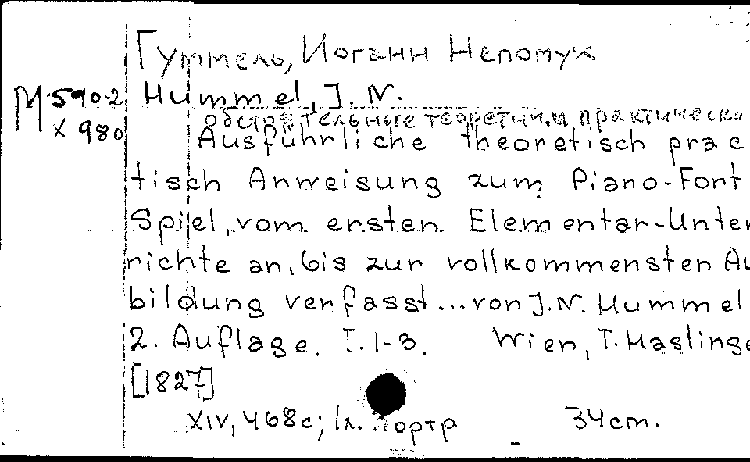 Гуммель, Иоганн Непомук
М 590-2 Hummel, J. N.
х 980 теоретич. и практически
Ausführliche theoretisch prac
tisch Anweisung zum Piano-Fort
Spiel, vom ersten Elementar-Unter
richte an, bis zur vollkommensten Au
bildung verfasst... von J. N. Hummel
2. Auflage. T. 1-3. Wien, T. Hasling
[1827]
XIV, 468 c; 1 л. портр 34 cm.